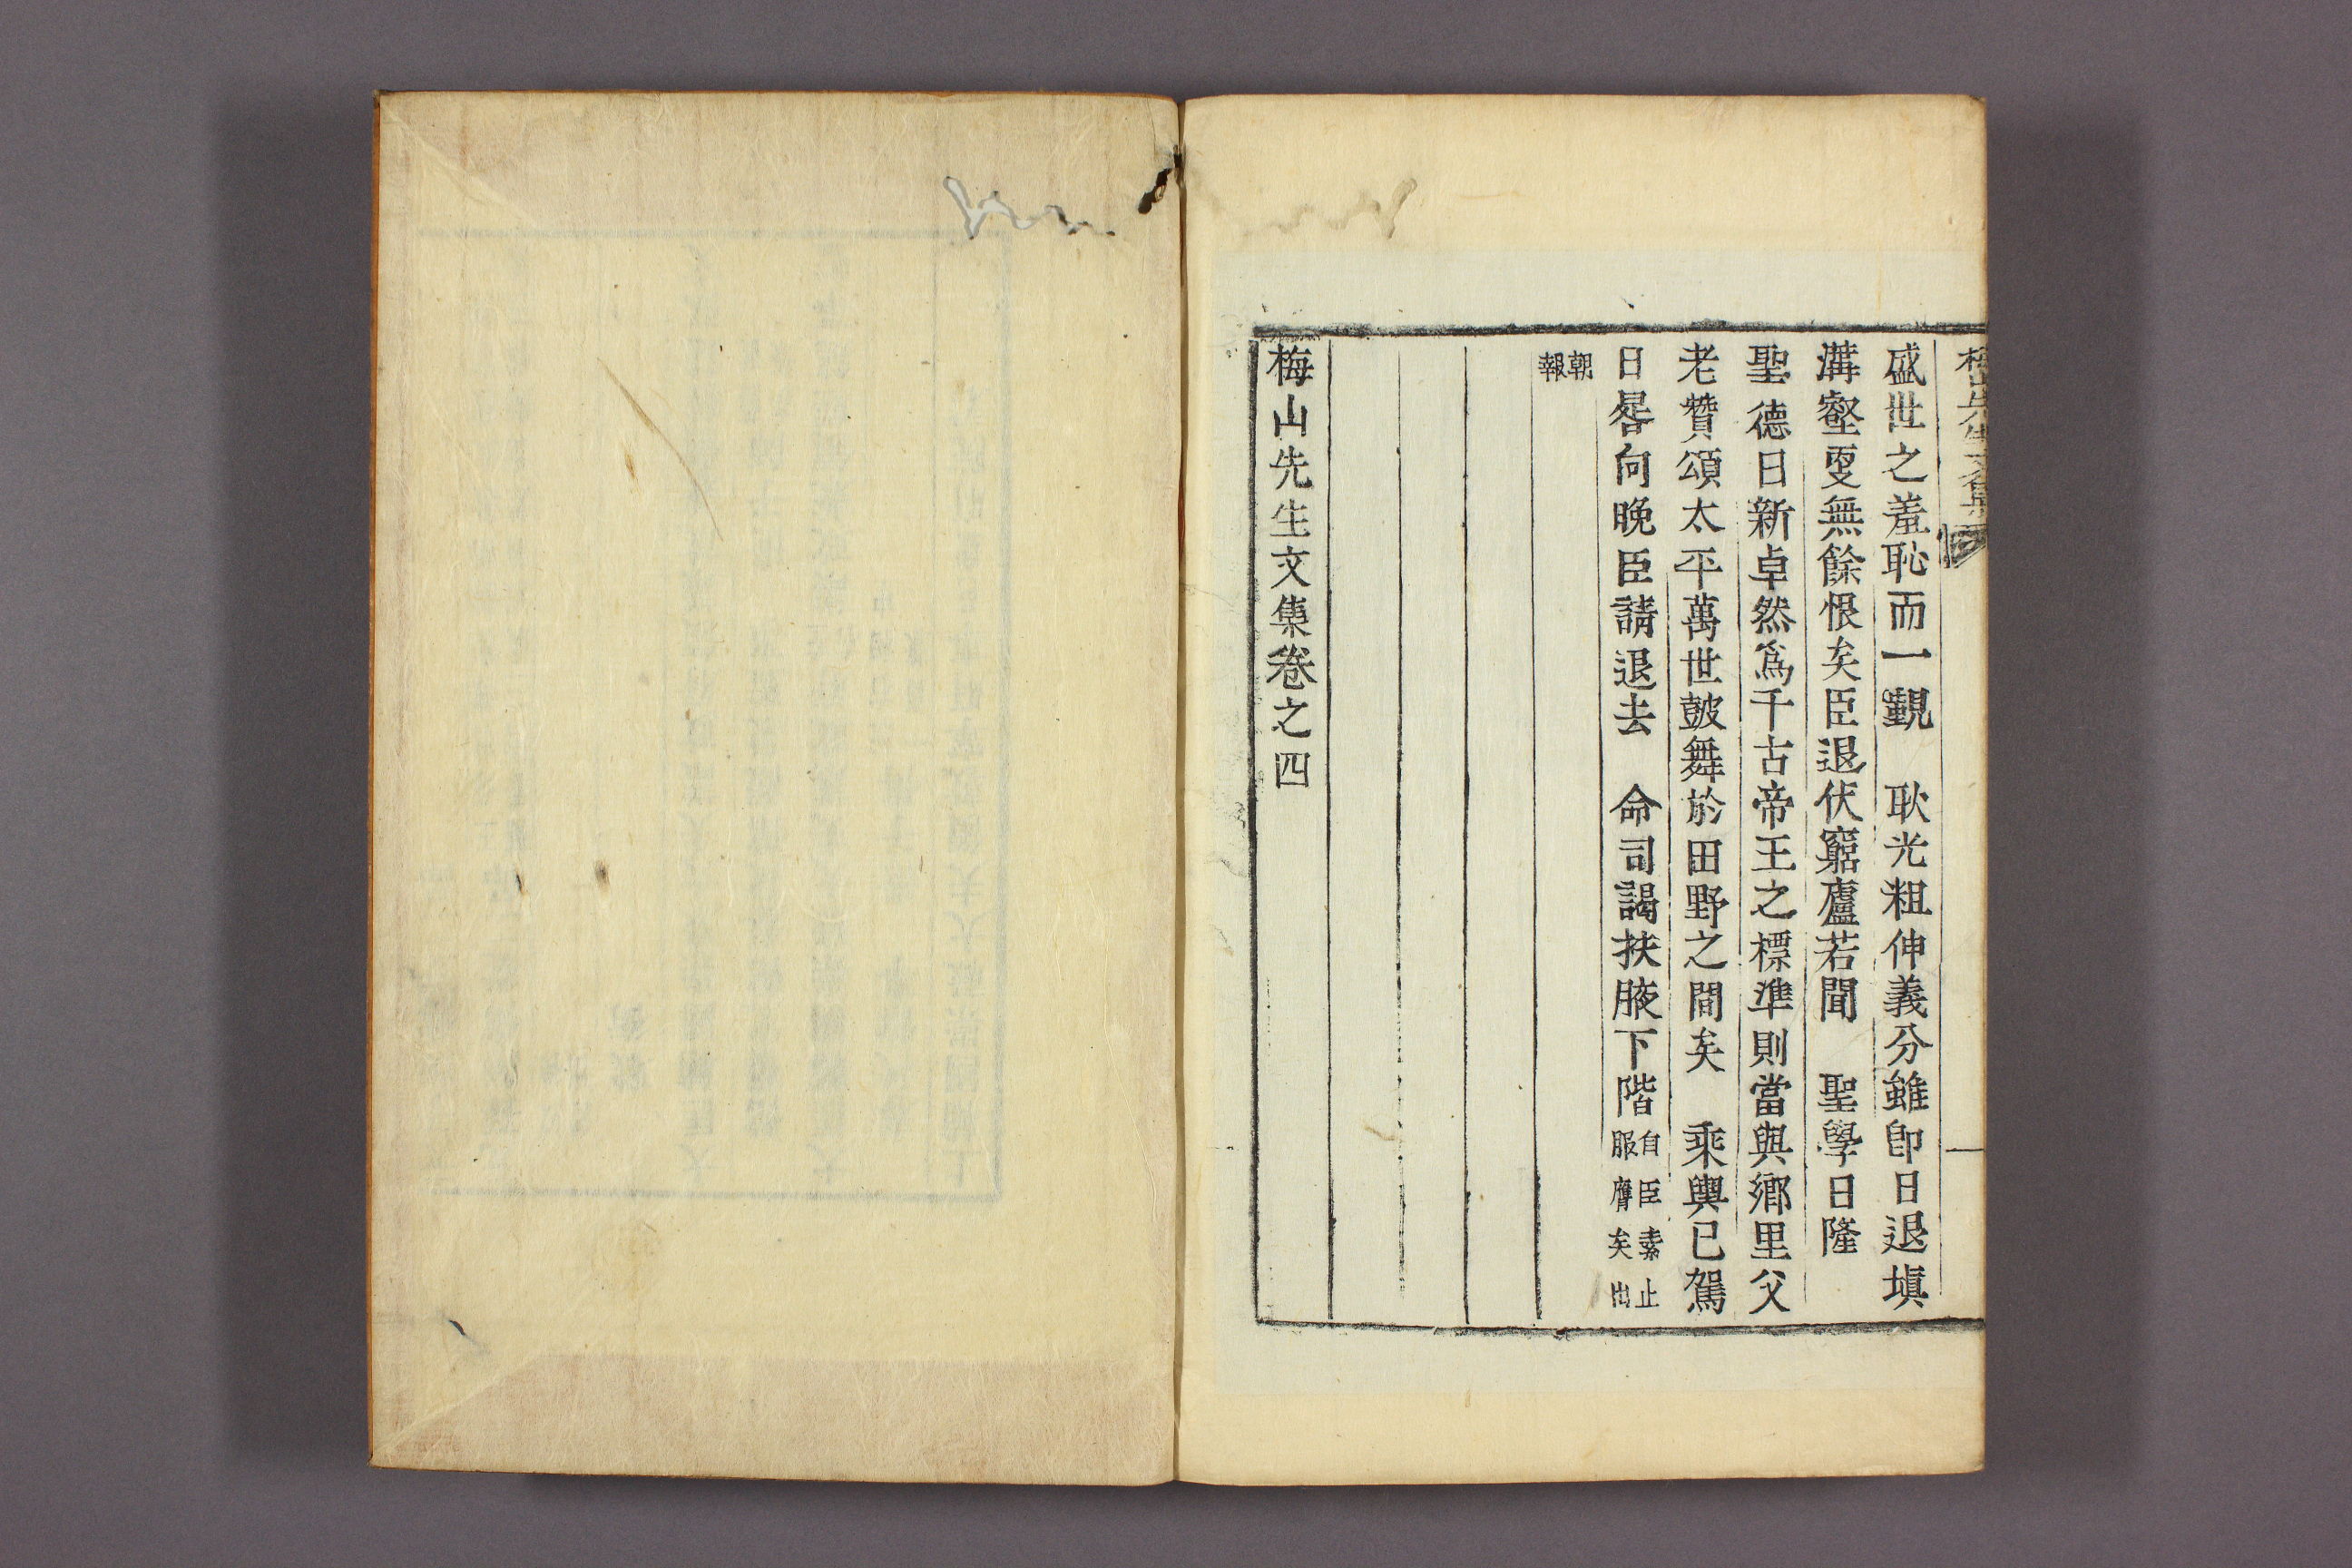 盛世之羞恥而一覲　耿光粗伸義分雖卽日退塡
溝壑更無餘恨矣臣退伏窮廬若聞　聖學日隆
聖德日新卓然爲千古帝王之標準則當與鄕里父
老贊頌太平萬世鼓舞於田野之間矣　乘輿已駕
日晷向晚臣請退去　命司謁扶腋下階自臣素止
服膺矣出
朝
報
梅山先生文集卷之四